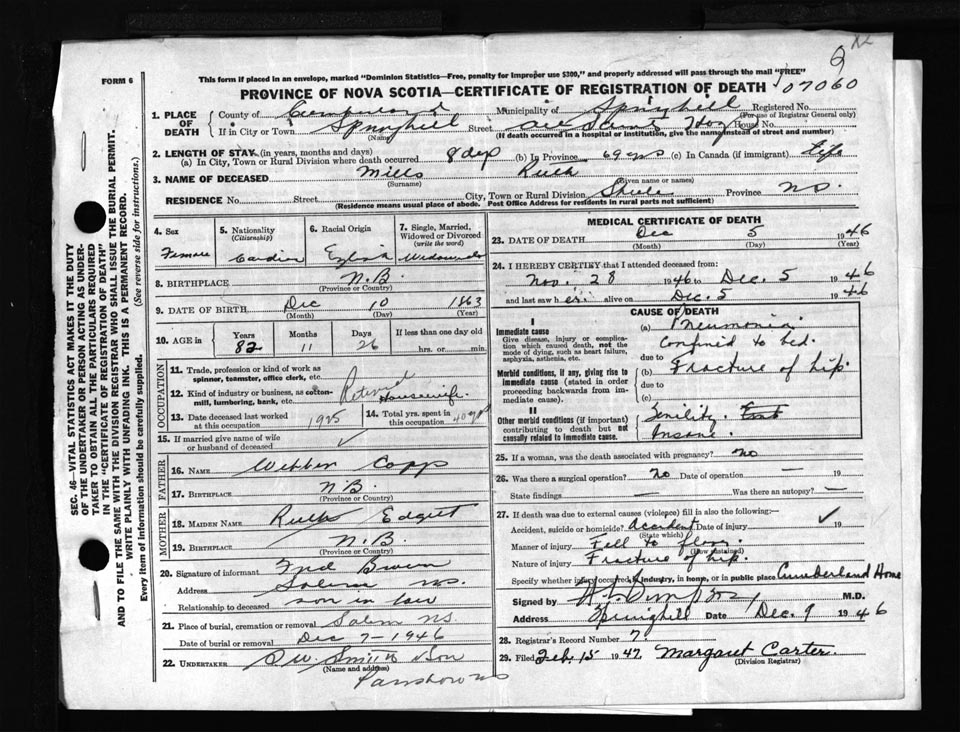 FORM 6
This form if placed in an envelope, marked "Dominion Statistics—Free, penalty for improper use $300," and properly addressed will pass through the mail "FREE"
PROVINCE OF NOVA SCOTIA—CERTIFICATE OF REGISTRATION OF DEATH
07060
1. PLACE OF DEATH
County of Cumberland Municipality of Springhill Registered No.
(For use of Registrar General only)
If in City or Town Springhill Street All Saints Hosp House No.
(Name) (If death occurred in a hospital or institution, give the name instead of street and number)
2. LENGTH OF STAY (in years, months and days)
(a) In City, Town or Rural Division where death occurred 8 days (b) In Province 69 yrs (c) In Canada (if immigrant) Life
3. NAME OF DECEASED Mills Ruth
(Surname) (Given name or names)
RESIDENCE No. Street City, Town or Rural Division Shulie Province N.S.
(Residence means usual place of abode. Post Office Address for residents in rural parts not sufficient)
4. Sex Female
5. Nationality (Citizenship) Canadian
6. Racial Origin English
7. Single, Married, Widowed or Divorced (write the word) Widowed
8. BIRTHPLACE N.B.
(Province or Country)
9. DATE OF BIRTH Dec 10 1863
(Month) (Day) (Year)
10. AGE in Years 82 Months 11 Days 26 If less than one day old hrs. or min.
OCCUPATION
11. Trade, profession or kind of work as spinner, teamster, office clerk, etc.
12. Kind of industry or business, as cotton-mill, lumbering, bank, etc. Retired Housewife
13. Date deceased last worked at this occupation 1925
14. Total yrs. spent in this occupation 40 yrs
15. If married give name of wife or husband of deceased
FATHER
16. NAME Copp
17. BIRTHPLACE N.B.
(Province or Country)
MOTHER
18. MAIDEN NAME Ruth Edgett
19. BIRTHPLACE N.B.
(Province or Country)
20. Signature of informant Fred
Address Salem N.S.
Relationship to deceased son in law
21. Place of burial, cremation or removal Salem N.S.
Date of burial or removal Dec 7-1946
22. UNDERTAKER Smith & Son
(Name and address)
Parrsboro N.S.
MEDICAL CERTIFICATE OF DEATH
23. DATE OF DEATH Dec 5 1946
(Month) (Day) (Year)
24. I HEREBY CERTIFY that I attended deceased from:
Nov. 28 1946 to Dec. 5 1946
and last saw her alive on Dec. 5 1946
CAUSE OF DEATH
I
Immediate cause
Give disease, injury or complication which caused death, not the mode of dying, such as heart failure, asphyxia, asthenia, etc.
(a) Pneumonia
Confined to bed.
due to
Morbid conditions, if any, giving rise to immediate cause (stated in order proceeding backwards from immediate cause).
(b) Fracture of hip.
due to
(c)
II
Other morbid conditions (if important) contributing to death but not causally related to immediate cause.
Senility.
Insane.
25. If a woman, was the death associated with pregnancy? no
26. Was there a surgical operation? no Date of operation — 19
State findings — Was there an autopsy? —
27. If death was due to external causes (violence) fill in also the following:—
Accident, suicide or homicide? Accident Date of injury 19
(State which)
Manner of injury Fell to floor.
(How sustained)
Nature of injury Fracture of hip.
Specify whether injury occurred in industry, in home, or in public place Cumberland Home
Signed by M.D.
Address Springhill Date Dec. 9 1946
28. Registrar's Record Number 70
29. Filed Feb. 15 1947. Margaret Carter.
(Division Registrar)
SEC. 46—VITAL STATISTICS ACT MAKES IT THE DUTY
OF THE UNDERTAKER OR PERSON ACTING AS UNDERTAKER TO OBTAIN ALL THE PARTICULARS REQUIRED
IN THE "CERTIFICATE OF REGISTRATION OF DEATH"
AND TO FILE THE SAME WITH THE DIVISION REGISTRAR WHO SHALL ISSUE THE BURIAL PERMIT.
WRITE PLAINLY WITH UNFADING INK. THIS IS A PERMANENT RECORD.
Every item of information should be carefully supplied. (See reverse side for instructions.)